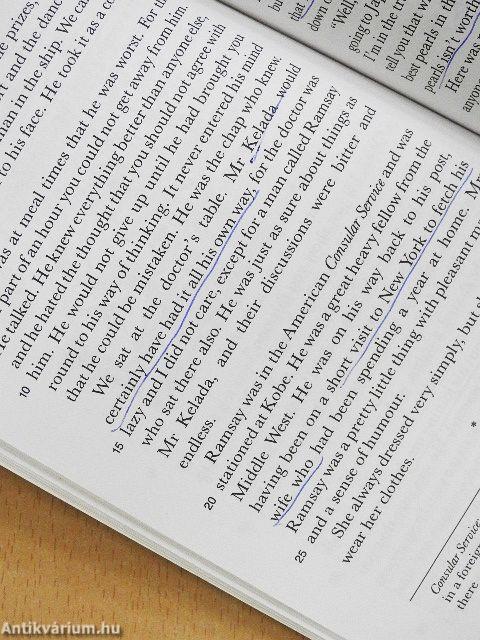 the prizes,
rt and the danc
man in the ship. We ca
to his face. He took it as a co
as at meal times that he was worst. For th
part of an hour you could not get away from him.
He talked. He knew everything better than anyone else,
and he hated the thought that you should not agree with
him. He would not give up until he had brought you
10 round to his way of thinking. It never entered his mind
that he could be mistaken. He was the chap who knew.
We sat at the doctor's table. Mr Kelada would
certainly have had it all his own way, for the doctor was
lazy and I did not care, except for a man called Ramsay
15 who sat there also. He was just as sure about things as
Mr Kelada, and their discussions were bitter and
endless.
Ramsay was in the American Consular Service and was
stationed at Kobe. He was a great heavy fellow from the
20 Middle West. He was on his way back to his post,
having been on a short visit to New York to fetch his
wife who had been spending a year at home. M
Ramsay was a pretty little thing with pleasant m
and a sense of humour.
She always dressed very simply, but sh
25 wear her clothes.
*
Consular Service
in a foreign
there
but
that
down
"Well,
going to Jap
I'm in the tr
tell you that w
best pearls in th
pearls isn't worth
Here was
anyone
Antikvárium.hu